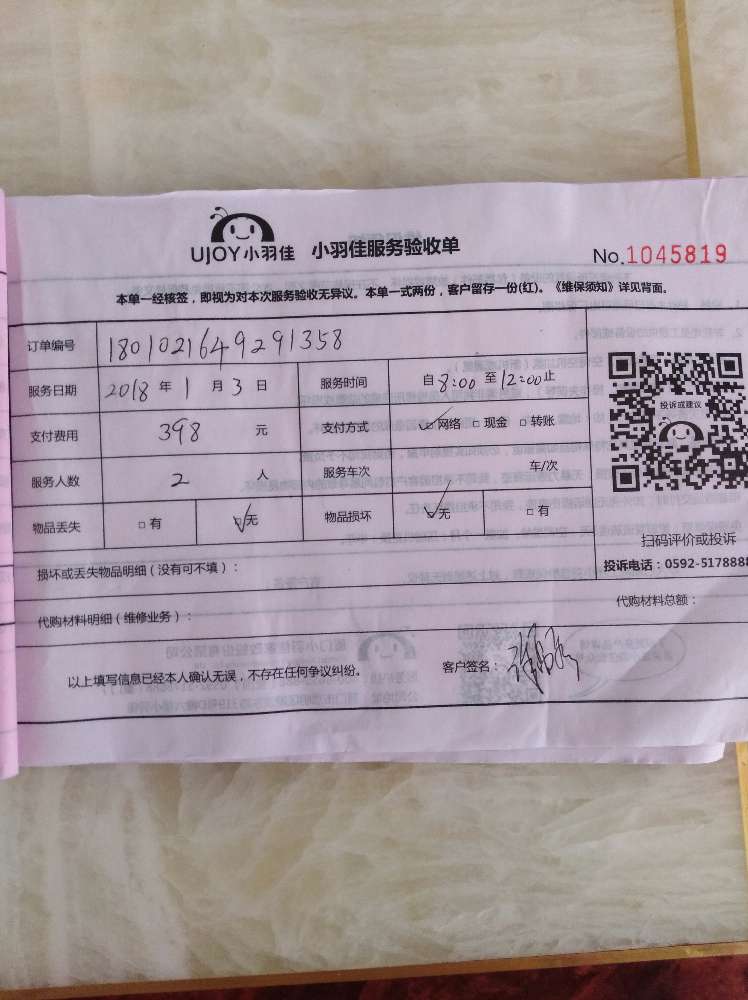 UJOY小羽佳 小羽佳服务验收单
No.1045819
本单一经核签，即视为对本次服务验收无异议。本单一式两份，客户留存一份(红)。《维保须知》详见背面。
订单编号 1801021649291358
服务日期 2018 年 1 月 3 日 服务时间 自 8:00 至 12:00 止
支付费用 398 元 支付方式 ☑网络 □现金 □转账
服务人数 2 人 服务车次 车/次
物品丢失 □有 ☑无 物品损坏 ☑无 □有
投诉或建议
扫码评价或投诉
投诉电话：0592-5178888
损坏或丢失物品明细（没有可不填）：
代购材料明细（维修业务）： 代购材料总额：
以上填写信息已经本人确认无误，不存在任何争议纠纷。 客户签名：